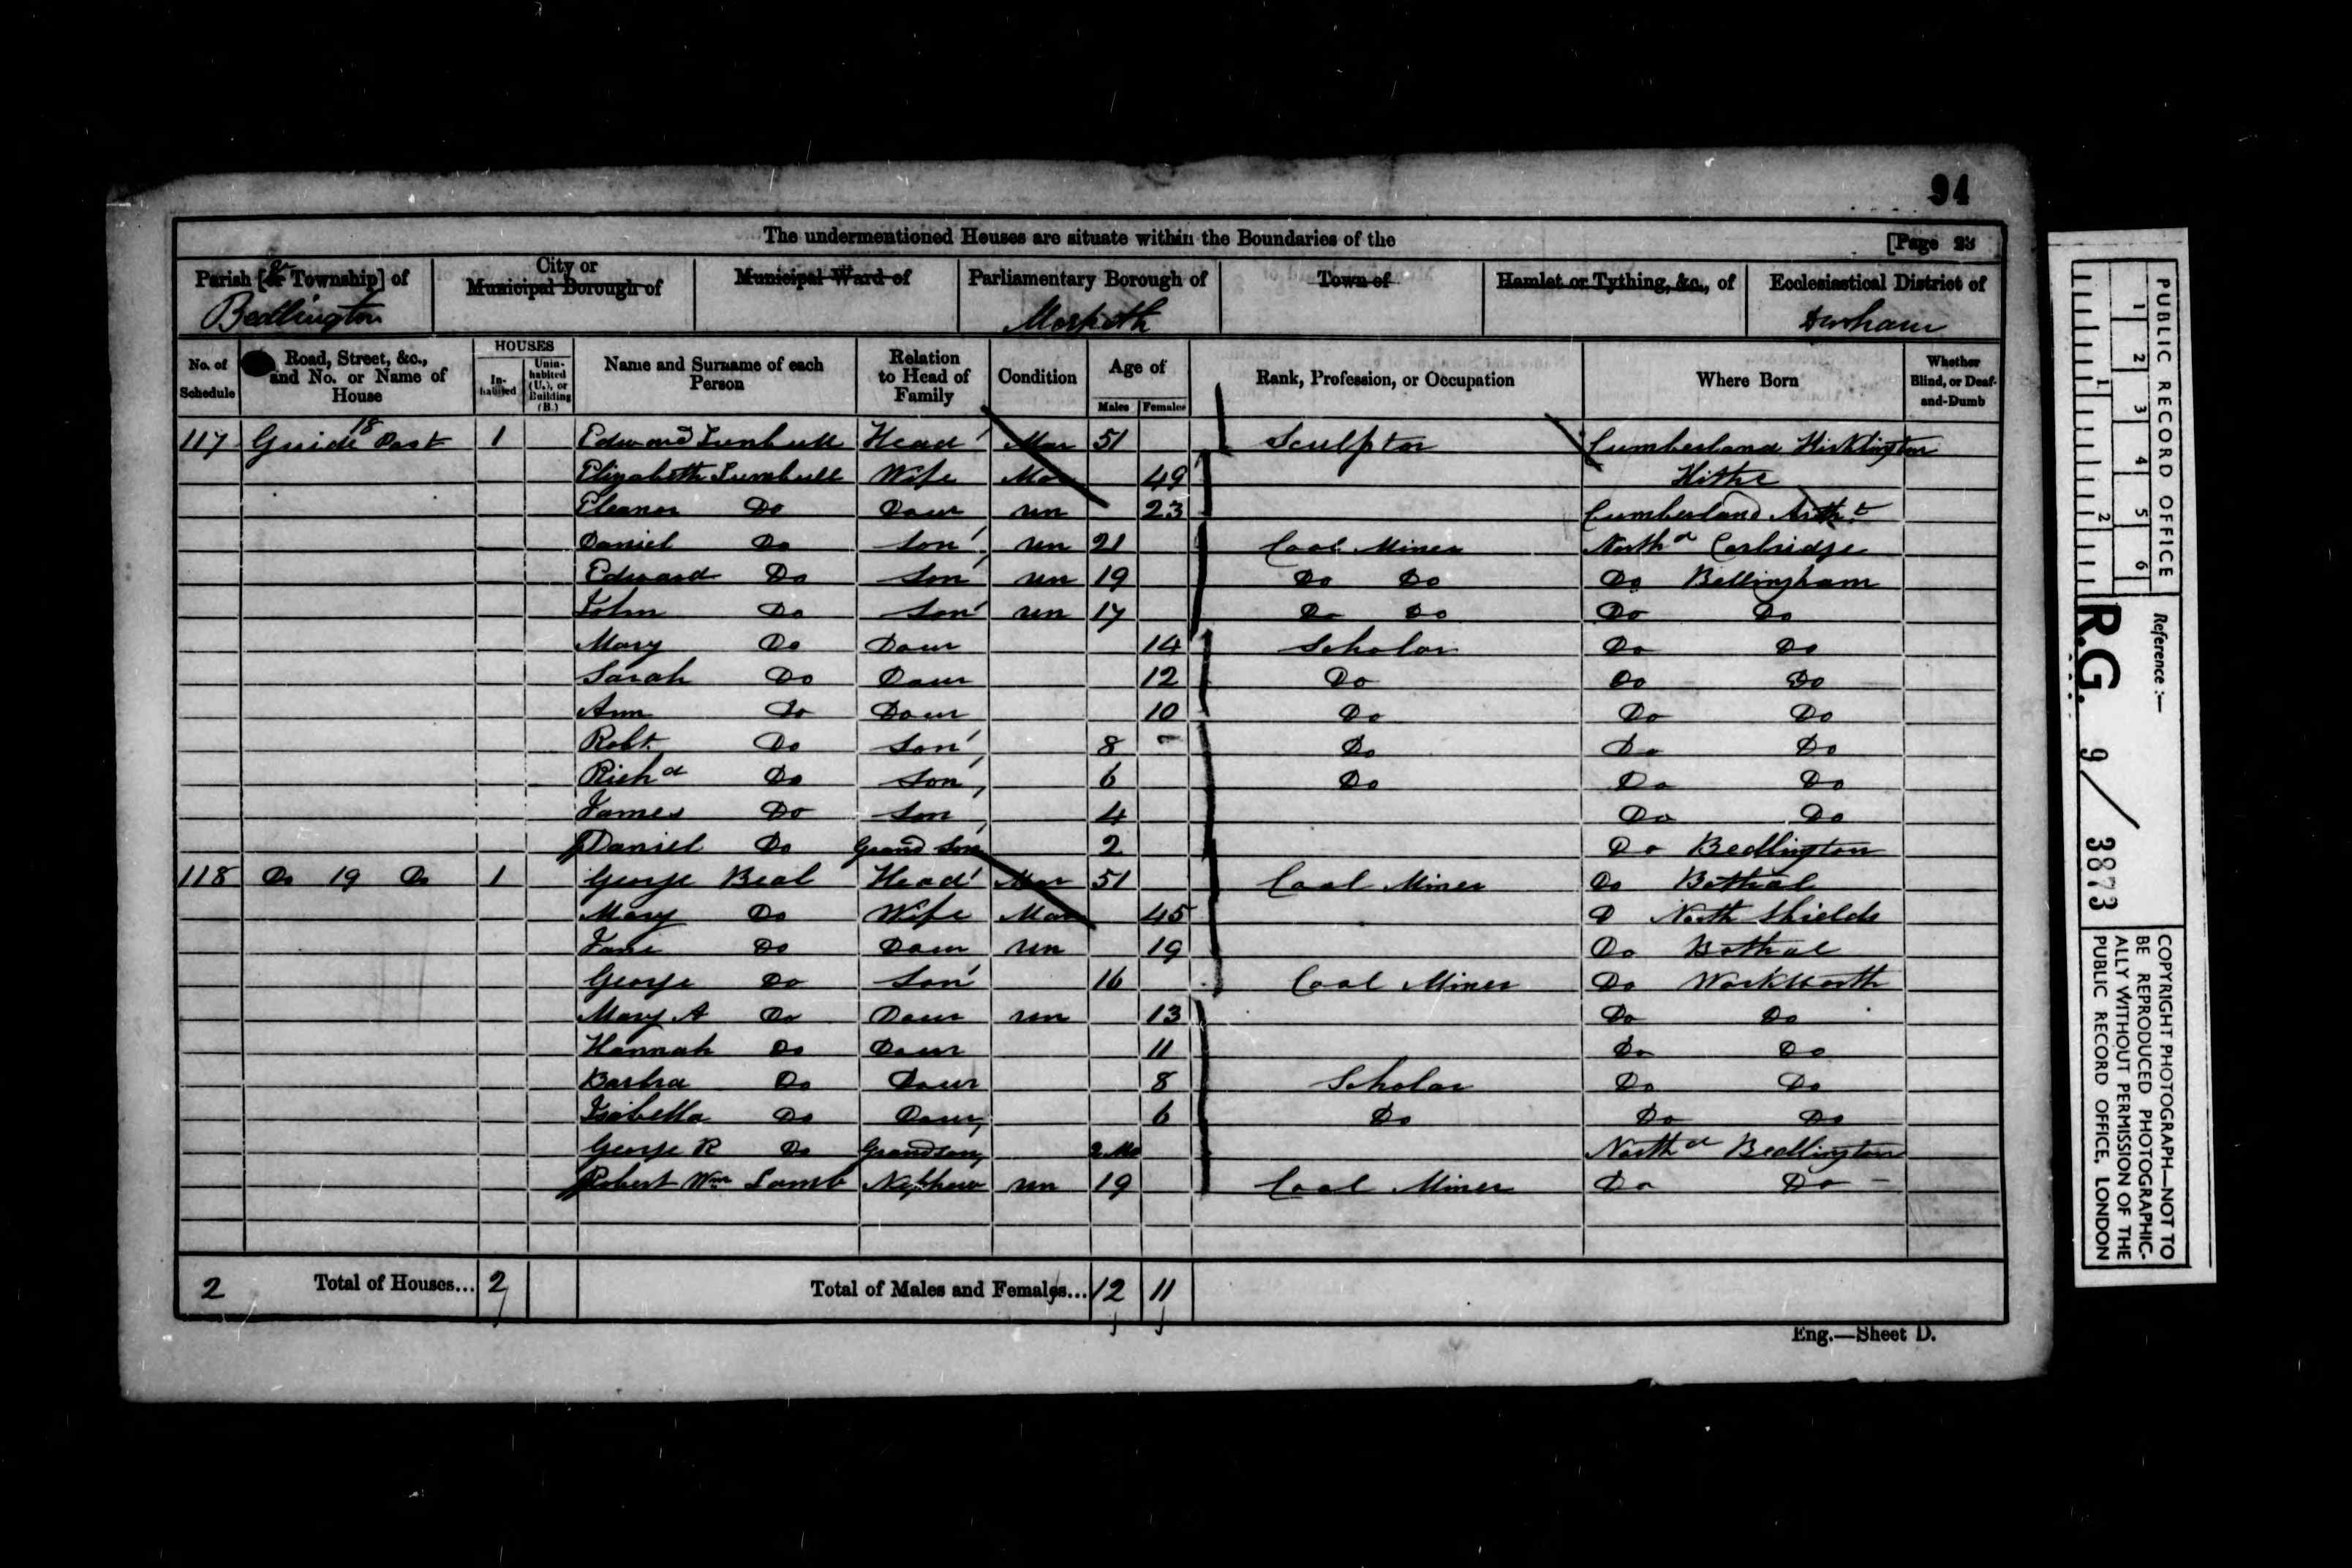 94
The undermentioned Houses are situate within the Boundaries of the [Page 23
Parish [& Township] of City or Municipal Borough of Municipal Ward of Parliamentary Borough of Town of Hamlet or Tything, &c., of Ecclesiastical District of
Bedlington Morpeth Durham
No. of Schedule Road, Street, &c., and No. or Name of House HOUSES Inhabited Uninhabited (U.), or Building (B.) Name and Surname of each Person Relation to Head of Family Condition Age of Males Females Rank, Profession, or Occupation Where Born Whether Blind, or Deaf-and-Dumb
117 18 Guide Post 1 Edward Turnbull Head Mar 51 Sculptor Cumberland Kirklington
Elizabeth Turnbull Wife Mar 49
Eleanor Do Daur un 23 Cumberland
Daniel Do Son un 21 Coal Miner Northd Corbridge
Edward Do Son un 19 Do Do Do Bellingham
John Do Son un 17 Do Do Do Do
Mary Do Daur 14 Scholar Do Do
Sarah Do Daur 12 Do Do Do
Ann Do Daur 10 Do Do Do
Robt Do Son 8 Do Do Do
Richd Do Son 6 Do Do Do
James Do Son 4 Do Do
Daniel Do Grand Son 2 Do Bedlington
118 Do 19 Do 1 George Beal Head Mar 51 Coal Miner Do Bothal
Mary Do Wife Mar 45 D North Shields
Jane Do Daur un 19 Do Bothal
George Do Son 16 Coal Miner Do Warkworth
Mary A Do Daur un 13 Do Do
Hannah Do Daur 11 Do Do
Barbra Do Daur 8 Scholar Do Do
Isabella Do Daur 6 Do Do Do
George R Do Grandson 2 Mo Northd Bedlington
Robert Wm Lamb Nephew un 19 Coal Miner Do Do
2 Total of Houses... 2 Total of Males and Females... 12 11
Eng.—Sheet D.
PUBLIC RECORD OFFICE
1 2 3 4 5 6
1 2
Reference :—
R.G. 9/3873
COPYRIGHT PHOTOGRAPH—NOT TO
BE REPRODUCED PHOTOGRAPHIC-
ALLY WITHOUT PERMISSION OF THE
PUBLIC RECORD OFFICE, LONDON